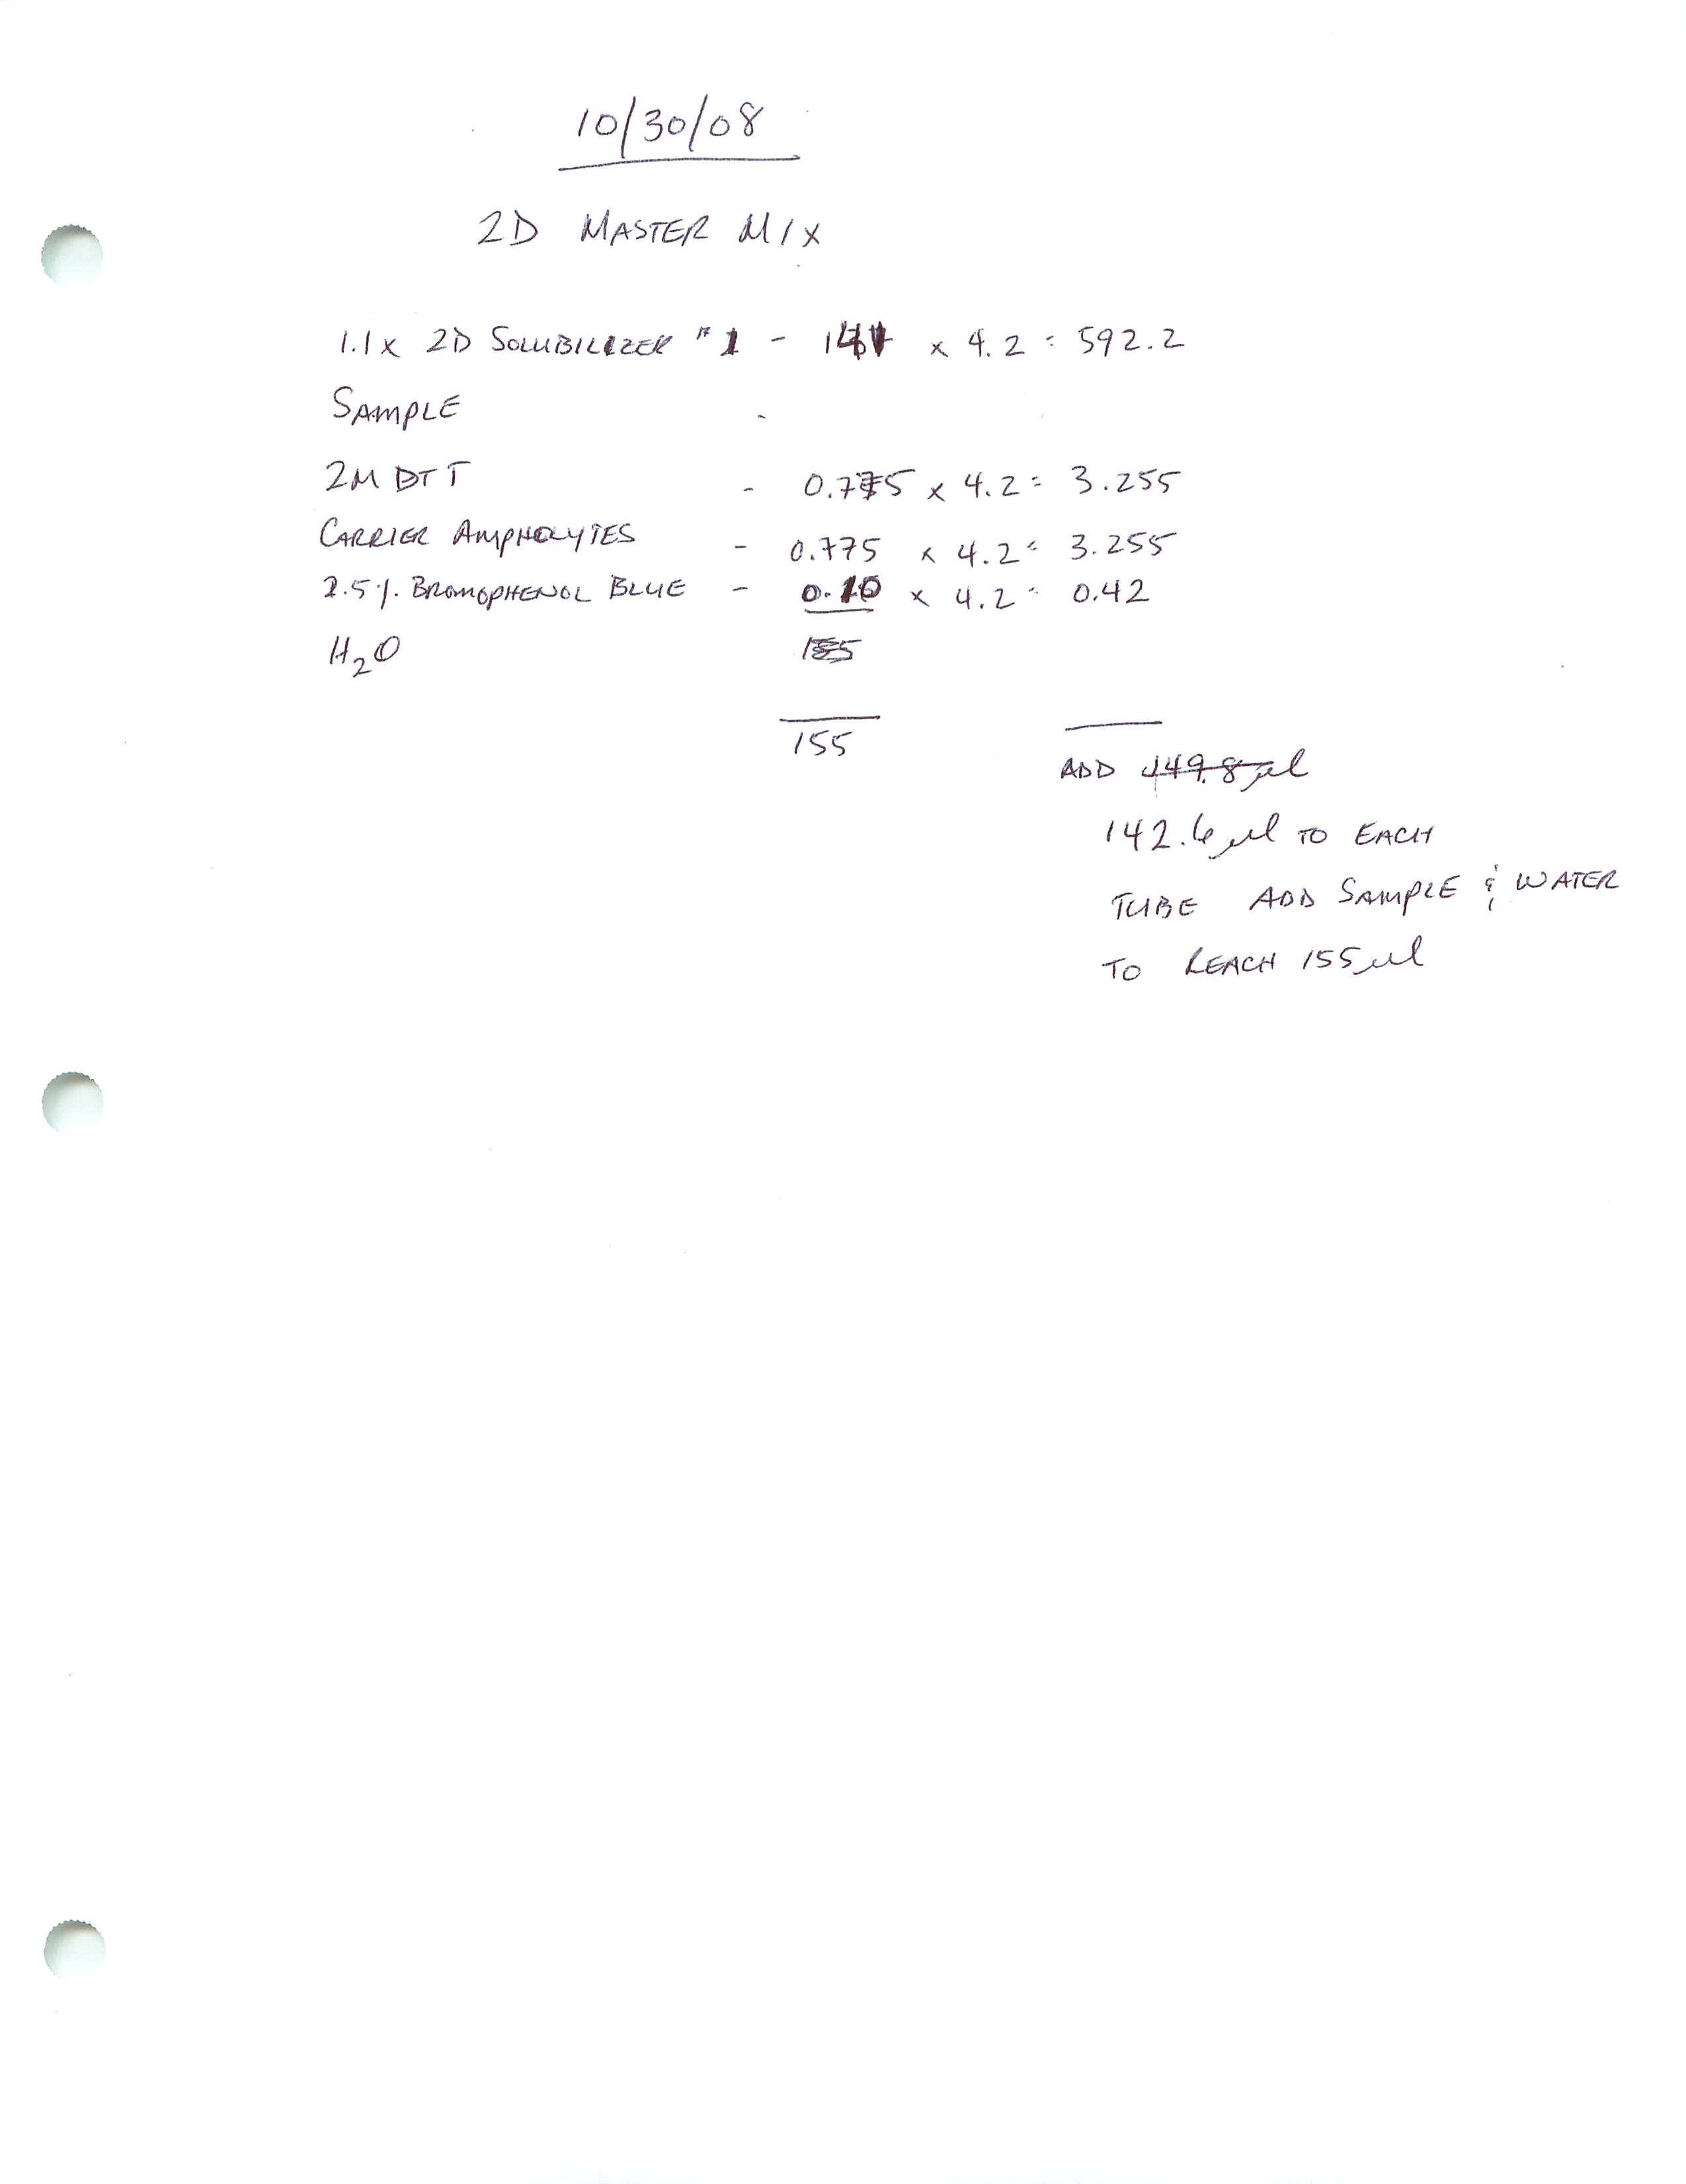 10/30/08
2D MASTER MIX
1.1x 2D SOLUBILIZER #1 - 141 x 4.2 = 592.2
SAMPLE -
2M DTT - 0.775 x 4.2 = 3.255
CARRIER AMPHOLYTES - 0.775 x 4.2 = 3.255
2.5%. BROMOPHENOL BLUE - 0.10 x 4.2 = 0.42
H2O 155
155
ADD 149.8 µl
142.6 µl TO EACH
TUBE ADD SAMPLE & WATER
TO REACH 155 µl